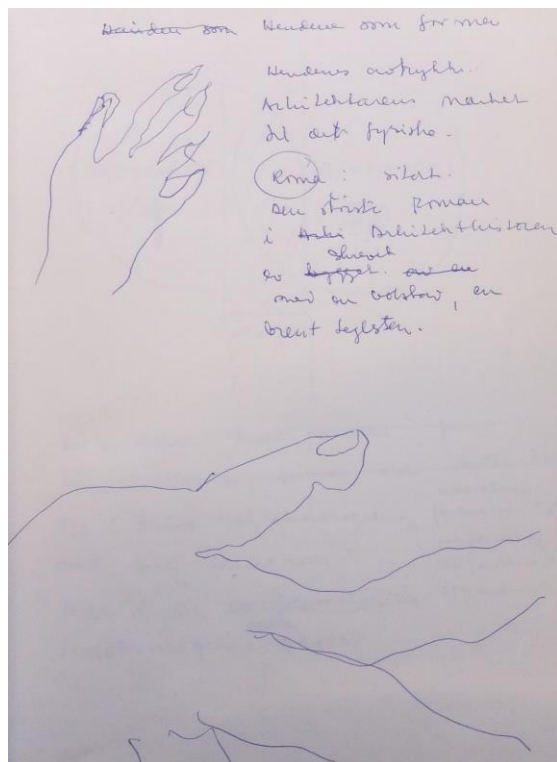 Hendene som former
Hendenes avtrykk.
Arkitekturens nærhet
til det fysiske.
Roma: sitat.
Den største Roman
i Arkitekthistorien
er skrevet
med en bokstav, en
brent teglsten.